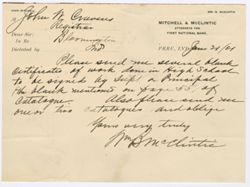 MITCHELL & McCLINTIC
ATTORNEYS FOR
FIRST NATIONAL BANK.
John W Cravens
Registrar
Dear Sir:
In Re
Bloomington
Dictated by
Ind
PERU, IND., June 24/01
Please send me several blank
Certificates of work done in High School
to be signed by Supt or Principal
the blank mentioned on page 53, of
Catalogue. Also please send me
one or two Catalogues and oblige
Yours very truly
McClintic